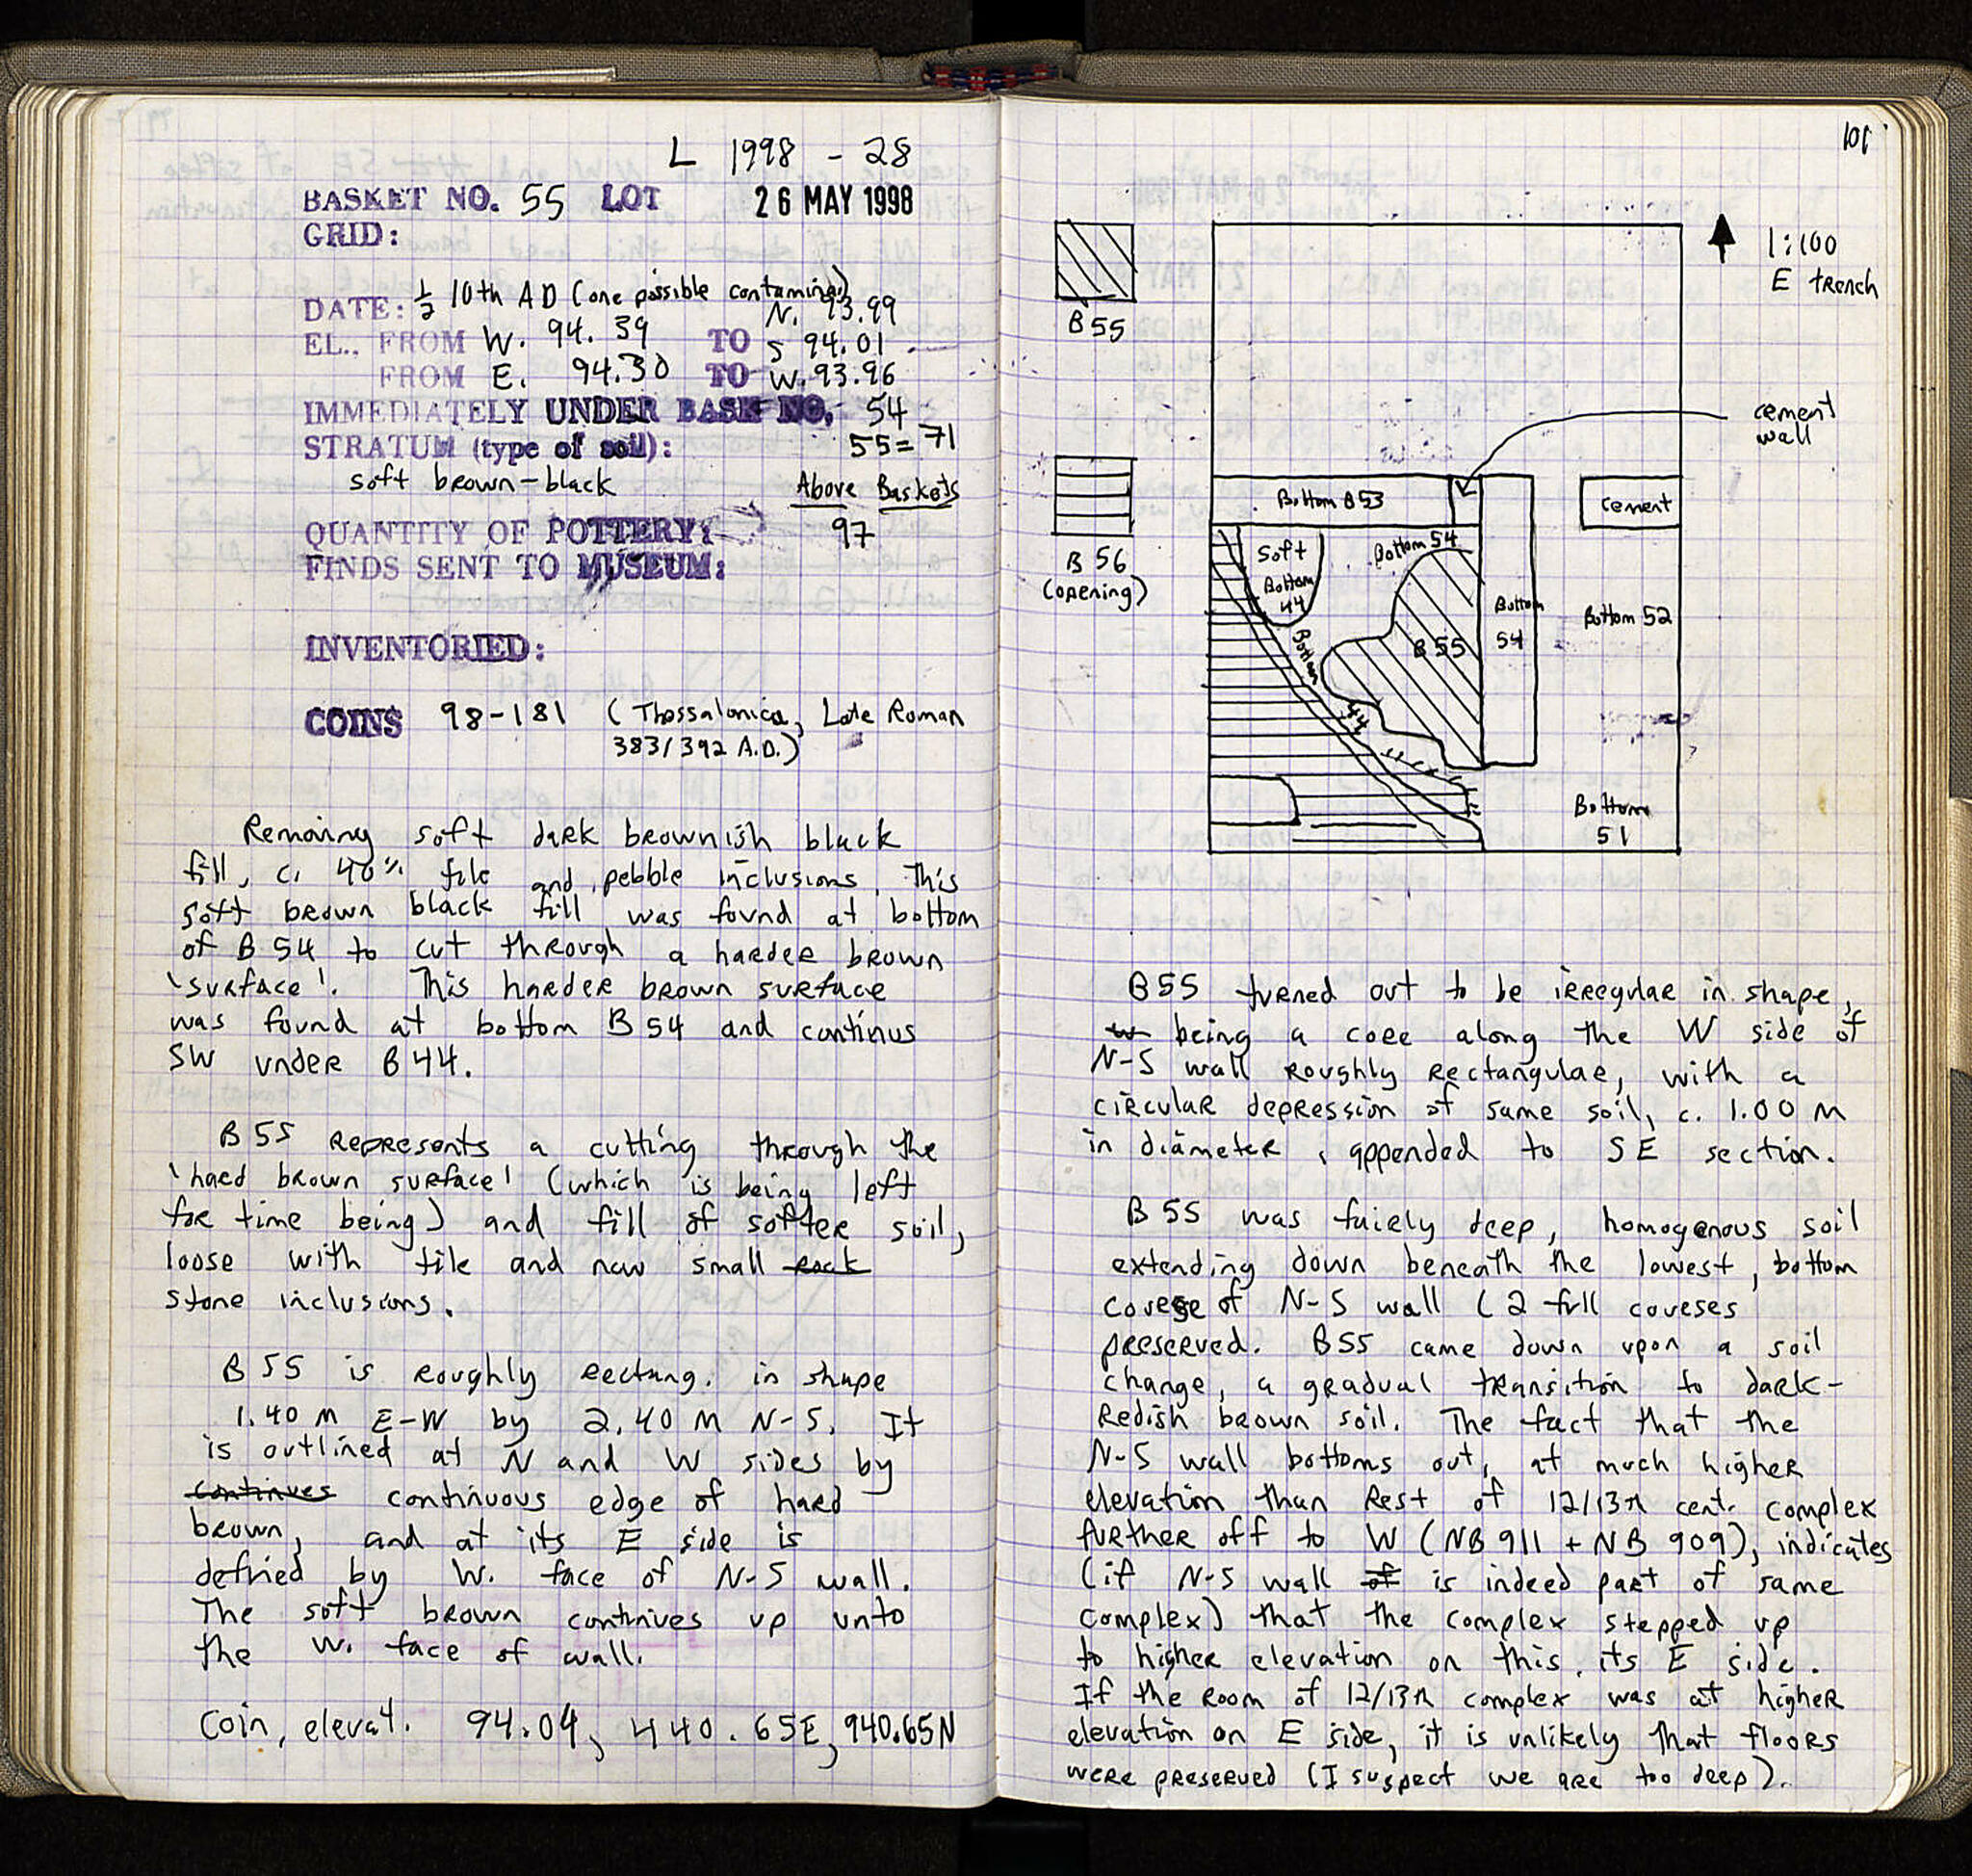 L 1998 - 28
BASKET NO. 55 LOT 26 MAY 1998
GRID:
DATE: 1/2 10th AD (one possible contaminer)
N. 93.99
EL., FROM W. 94.39 TO S 94.01
FROM E. 94.30 TO W. 93.96
IMMEDIATELY UNDER BASK NO. 54
STRATUM (type of soil): 55=71
soft brown-black Above Baskets
QUANTITY OF POTTERY: 97
FINDS SENT TO MUSEUM:
INVENTORIED:
COINS 98-181 (Thessalonica, Late Roman
383/392 A.D.)
Removing soft dark brownish black
fill, c. 40% tile and pebble inclusions. This
soft brown black fill was found at bottom
of B 54 to cut through a harder brown
'surface'. This harder brown surface
was found at bottom B 54 and continus
SW under B 44.
B 55 represents a cutting through the
'hard brown surface' (which is being left
for time being) and fill of softer soil,
loose with tile and naw small rock
stone inclusions.
B 55 is roughly rectang. in shape
1.40 M E-W by 2.40 M N-S. It
is outlined at N and W sides by
continues continuous edge of hard
brown, and at its E side is
defined by W. face of N-S wall.
The soft brown continues up unto
the W. face of wall.
Coin, elevat. 94.04, 440.65E, 940.65N
101
1:100
E trench
B 55
cement
wall
Bottom B53
cement
B 56
(opening)
Soft
Bottom
44
Bottom 54
Bottom
44
B 55
Bottom
54
Bottom 52
Bottom
51
B55 turned out to be irregular in shape,
w being a core along the W side of
N-S wall roughly rectangular, with a
circular depression of same soil, c. 1.00 M
in diameter, appended to SE section.
B 55 was fairly deep, homogenous soil
extending down beneath the lowest, bottom
course of N-S wall (2 full courses
preserved. B55 came down upon a soil
change, a gradual transition to dark-
redish brown soil. The fact that the
N-S wall bottoms out, at much higher
elevation than rest of 12/13th cent. complex
further off to W (NB 911 + NB 909), indicates
(if N-S wall of is indeed part of same
complex) that the complex stepped up
to higher elevation on this, its E side.
If the room of 12/13th complex was at higher
elevation on E side, it is unlikely that floors
were preserved (I suspect we are too deep).